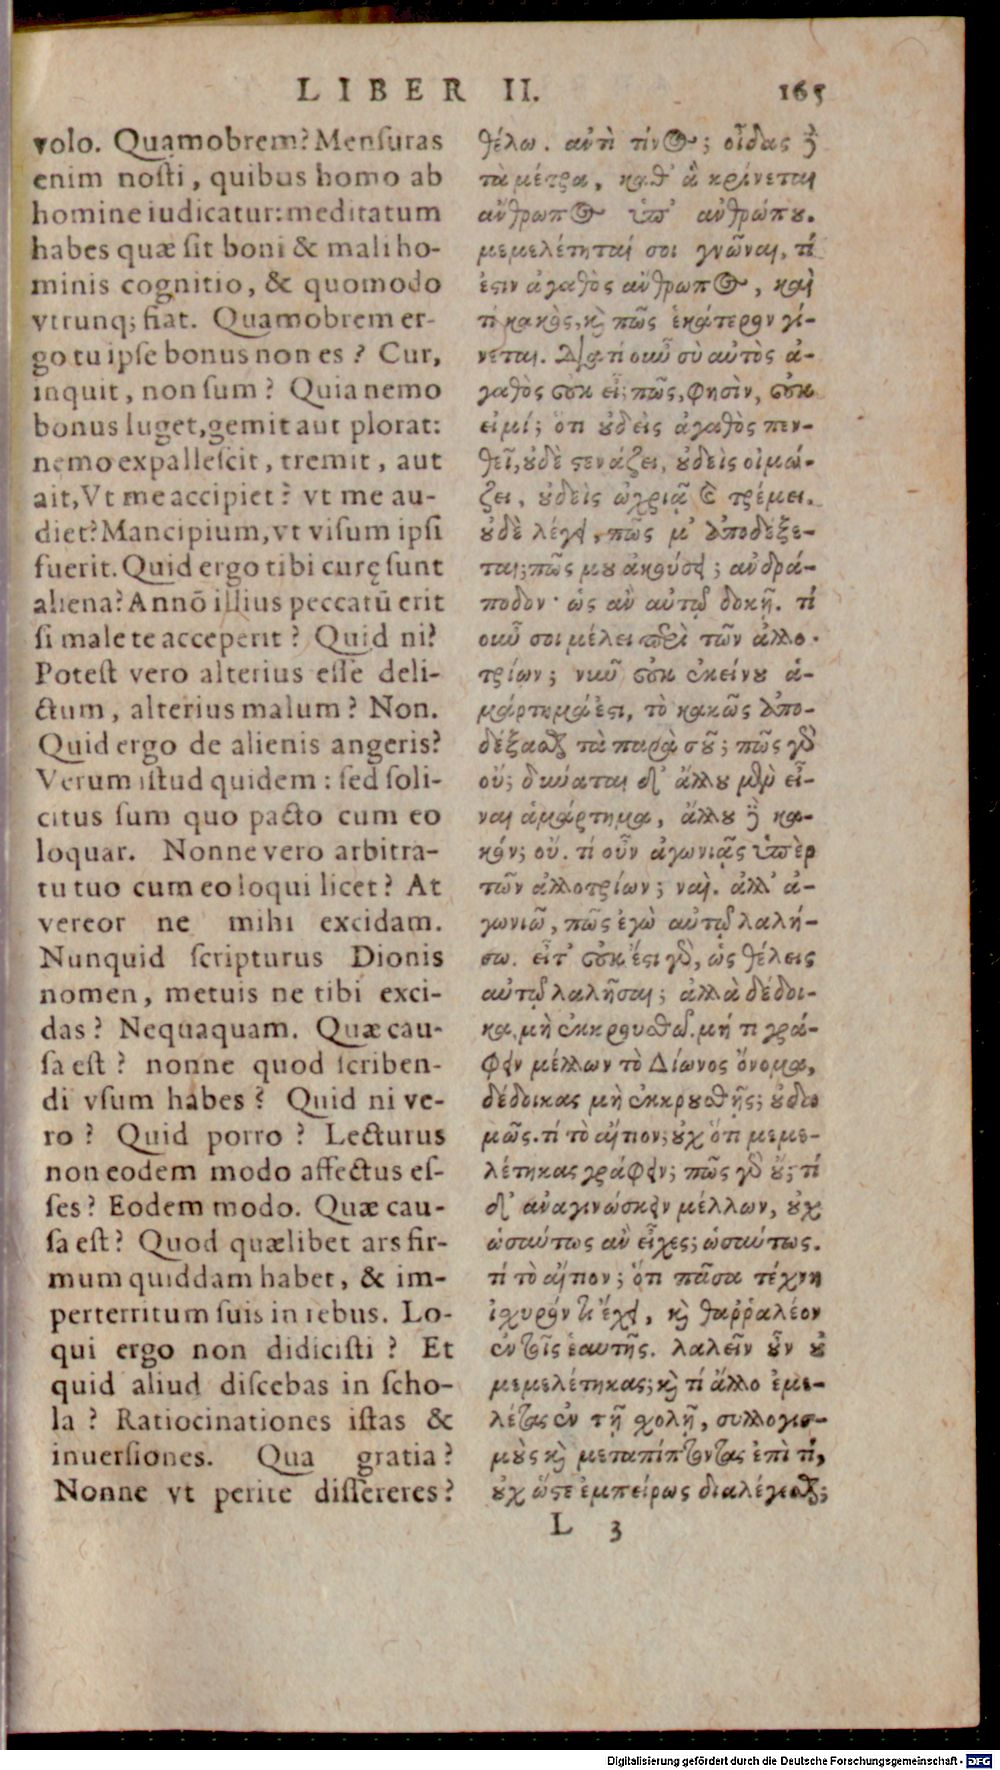 LIBER II. 165
volo. Quamobrem? Mensuras
enim nosti, quibus homo ab
homine iudicatur: meditatum
habes quæ sit boni & mali ho-
minis cognitio, & quomodo
vtrunq; fiat. Quamobrem er-
go tu ipse bonus non es? Cur,
inquit, non sum? Quia nemo
bonus luget, gemit aut plorat:
nemo expallescit, tremit, aut
ait, Vt me accipiet? vt me au-
diet? Mancipium, vt visum ipsi
fuerit. Quid ergo tibi curę sunt
aliena? Annō illius peccatū erit
si male te acceperit? Quid ni?
Potest vero alterius esse deli-
ctum, alterius malum? Non.
Quid ergo de alienis angeris?
Verum istud quidem: sed soli-
citus sum quo pacto cum eo
loquar. Nonne vero arbitra-
tu tuo cum eo loqui licet? At
vereor ne mihi excidam.
Nunquid scripturus Dionis
nomen, metuis ne tibi exci-
das? Nequaquam. Quæ cau-
sa est? nonne quod scriben-
di vsum habes? Quid ni ve-
ro? Quid porro? Lecturus
non eodem modo affectus es-
ses? Eodem modo. Quæ cau-
sa est? Quod quælibet ars fir-
mum quiddam habet, & im-
perterritum suis in rebus. Lo-
qui ergo non didicisti? Et
quid aliud discebas in scho-
la? Ratiocinationes istas &
inuersiones. Qua gratia?
Nonne vt perite dissereres?
θέλω. αὐτὶ τίνος; οἶδας γὰρ
τὰ μέτρα, καθ' ἃ κρίνεται
ἄνθρωπος ὑπ' ἀνθρώπου.
μεμελέτηταί σοι γνῶναι, τί
ἐστιν ἀγαθὸς ἄνθρωπος, καὶ
τί κακὸς, καὶ πῶς ἑκάτερον γί-
νεται. Διατί οὖν σὺ αὐτὸς ἀ-
γαθὸς οὐκ εἶ; πῶς, φησὶν, οὐκ
εἰμί; ὅτι οὐδεὶς ἀγαθὸς πεν-
θεῖ, οὐδὲ στενάζει, οὐδεὶς οἰμώ-
ζει, οὐδεὶς ὠχριᾷ καὶ τρέμει.
οὐδὲ λέγει, πῶς μ' ἀποδέξε-
ται; πῶς μου ἀκούσει; ἀνδρά-
ποδον· ὡς ἂν αὐτῷ δοκῇ. τί
οὖν σοι μέλει περὶ τῶν ἀλλο-
τρίων; νῦν οὐκ ἐκείνου ἁ-
μάρτημά ἐστι, τὸ κακῶς ἀπο-
δέξασθαι τὰ παρὰ σοῦ; πῶς γὰρ
οὔ; δύναται δ' ἄλλου μὲν εἶ-
ναι ἁμάρτημα, ἄλλου δὲ κα-
κόν; οὔ. τί οὖν ἀγωνιᾷς ὑπὲρ
τῶν ἀλλοτρίων; ναὶ. ἀλλ' ἀ-
γωνιῶ, πῶς ἐγὼ αὐτῷ λαλή-
σω. εἶτ' οὐκ ἔστι γὰρ, ὡς θέλεις
αὐτῷ λαλῆσαι; ἀλλὰ δέδοι-
κα, μὴ ἐκκρουσθῶ. μή τι γρά-
φειν μέλλων τὸ Δίωνος ὄνομα,
δέδοικας μὴ ἐκκρουσθῇς; οὐδα-
μῶς. τί τὸ αἴτιον; οὐχ ὅτι μεμε-
λέτηκας γράφειν; πῶς γὰρ οὔ; τί
δ' ἀναγινώσκειν μέλλων, οὐχ
ὡσαύτως ἂν εἶχες; ὡσαύτως.
τί τὸ αἴτιον; ὅτι πᾶσα τέχνη
ἰσχυρόν τι ἔχει, καὶ θαῤῥαλέον
ἐν τοῖς ἑαυτῆς. λαλεῖν οὖν οὐ
μεμελέτηκας; καὶ τί ἄλλο ἐμε-
λέτας ἐν τῇ σχολῇ, συλλογισ-
μοὺς καὶ μεταπίπτοντας ἐπὶ τί,
οὐχ ὥστε ἐμπείρως διαλέγεσθαι;
L 3
Digitalisierung gefördert durch die Deutsche Forschungsgemeinschaft - DFG